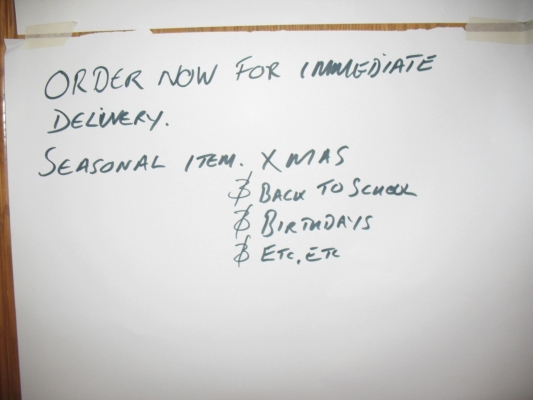 ORDER NOW FOR IMMEDIATE
DELIVERY.
SEASONAL ITEM. XMAS
$ BACK TO SCHOOL
$ BIRTHDAYS
$ ETC, ETC